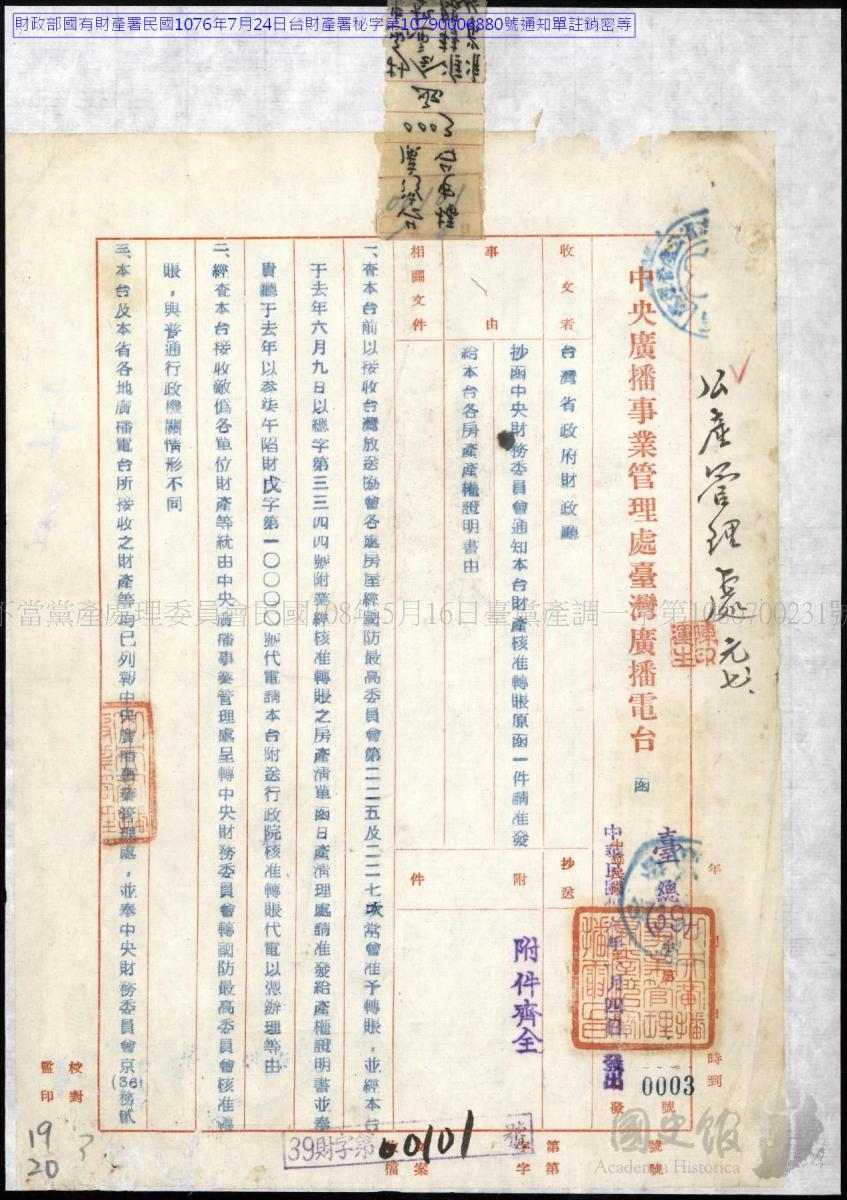 財政部國有財產署民國1076年7月24日台財產署秘字第10790006880號通知單註銷密等
公產管理處
元七
中央廣播事業管理處臺灣廣播電台 函
年
時到
臺總
發出
0003
發 號
收文者 台灣省政府財政廳
抄送
事由
抄函中央財務委員會通知本台財產核准轉賬原函一件請准發
給本台各房產產權證明書由
附件
附件齊全
相關文件
一、查本台前以接收台灣放送協會各處房屋經國防最高委員會第二二五及二二七次常會准予轉賬,並經本台
于去年六月九日以總字第三三四四號附業經核准轉賬之房產清單函日產清理處請准發給產權證明書並奉
貴廳于去年以叁柒午陷財戊字第一〇〇〇〇號代電請本台附送行政院核准轉賬代電以憑辦理等由
二、經查本台接收敵偽各單位財產等統由中央廣播事業管理處呈轉中央財務委員會轉國防最高委員會核准轉
賬,與普通行政機關情形不同
三、本台及本省各地廣播電台所接收之財產等均已列報中央廣播事業管理處,並奉中央財務委員會京(36)務貳
校對
監印
39財字第00101號
檔案
字第 號
字第 號
19
20
不當黨產處理委員會民國108年5月16日臺黨產調一字第1080700231號
國史館
Academia Historica